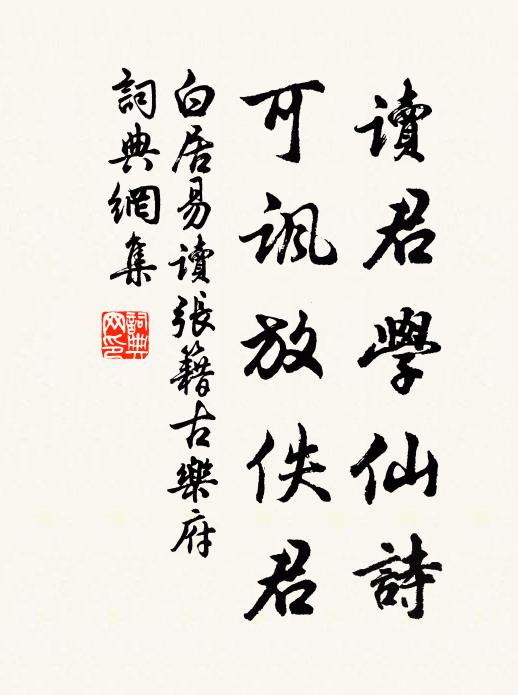 讀君學仙詩
可諷放佚君
白居易讀張籍古樂府
詞典網集
詞典網印